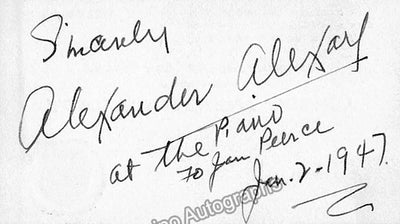 Sincerely
Alexander Alexay
at the Piano
to Jan Peerce
Jan. 2 - 1947
Autographs